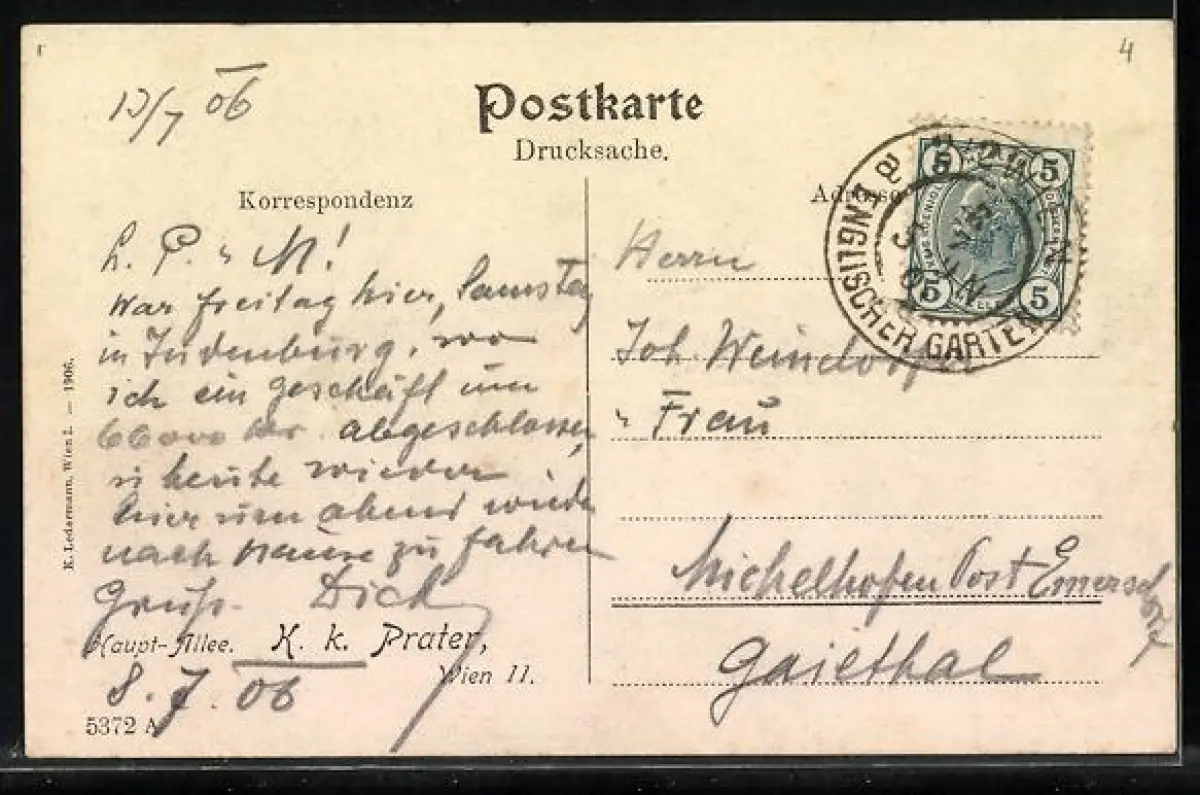 4
13/7 06
Postkarte
Drucksache.
Korrespondenz
Adresse
L. P. u M!
War Freitag hier, Samstag
in Judenburg, wo
ich ein Geschäft um
66000 abgeschlossen
u heute wieder
hier um abend wieder
nach Hause zu fahren
Gruß. Dick
Haupt-Allee. K. k. Prater,
Wien II.
8. 7. 06
5372 A
K. Ledermann, Wien I. — 1906.
5 5
5 5
ENGLISCHER GARTEN
Herrn
Joh. Weindorfer
u Frau
Michelhofen Post